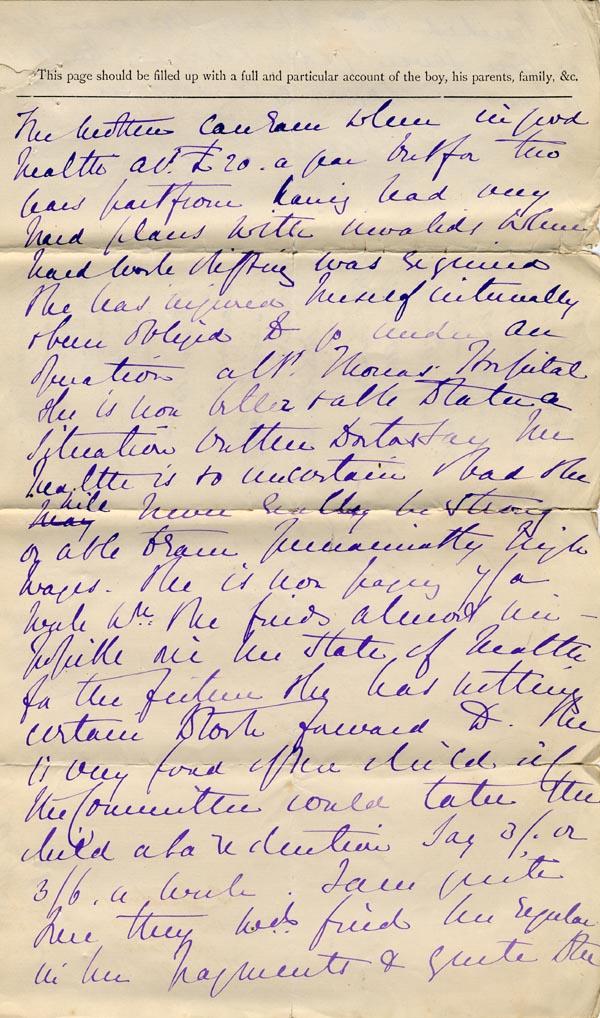 This page should be filled up with a full and particular account of the boy, his parents, family, &c.
The mother can earn when in good
health abt. £20. a year but for two
years past from having had very
hard places with invalids when
hard work lifting was required
She has injured herself internally
& been obliged to go under an
operation at St. Thomas' Hospital
She is now better & able to take a
situation but the Doctors say her
health is so uncertain & bad she
may will never really be strong
or able to earn permanently high
wages. She is now paying 7/ a
week wh: she finds almost im-
possible in her state of health
for the future she has nothing
certain to look forward to. She
is very fond of her child if
the Committee would take the
child at a reduction say 3/. or
3/6. a week. I am quite
sure they wd. find her regular
in her payments & quite